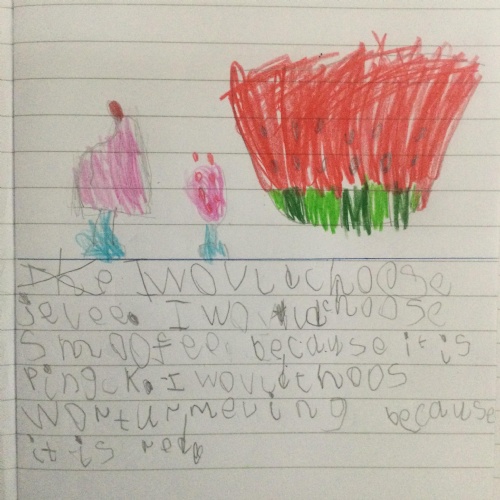 I woulld choose
jevee. I would choose
Smoofee. because it is
pingk. I would choos
worturmering because
it is red